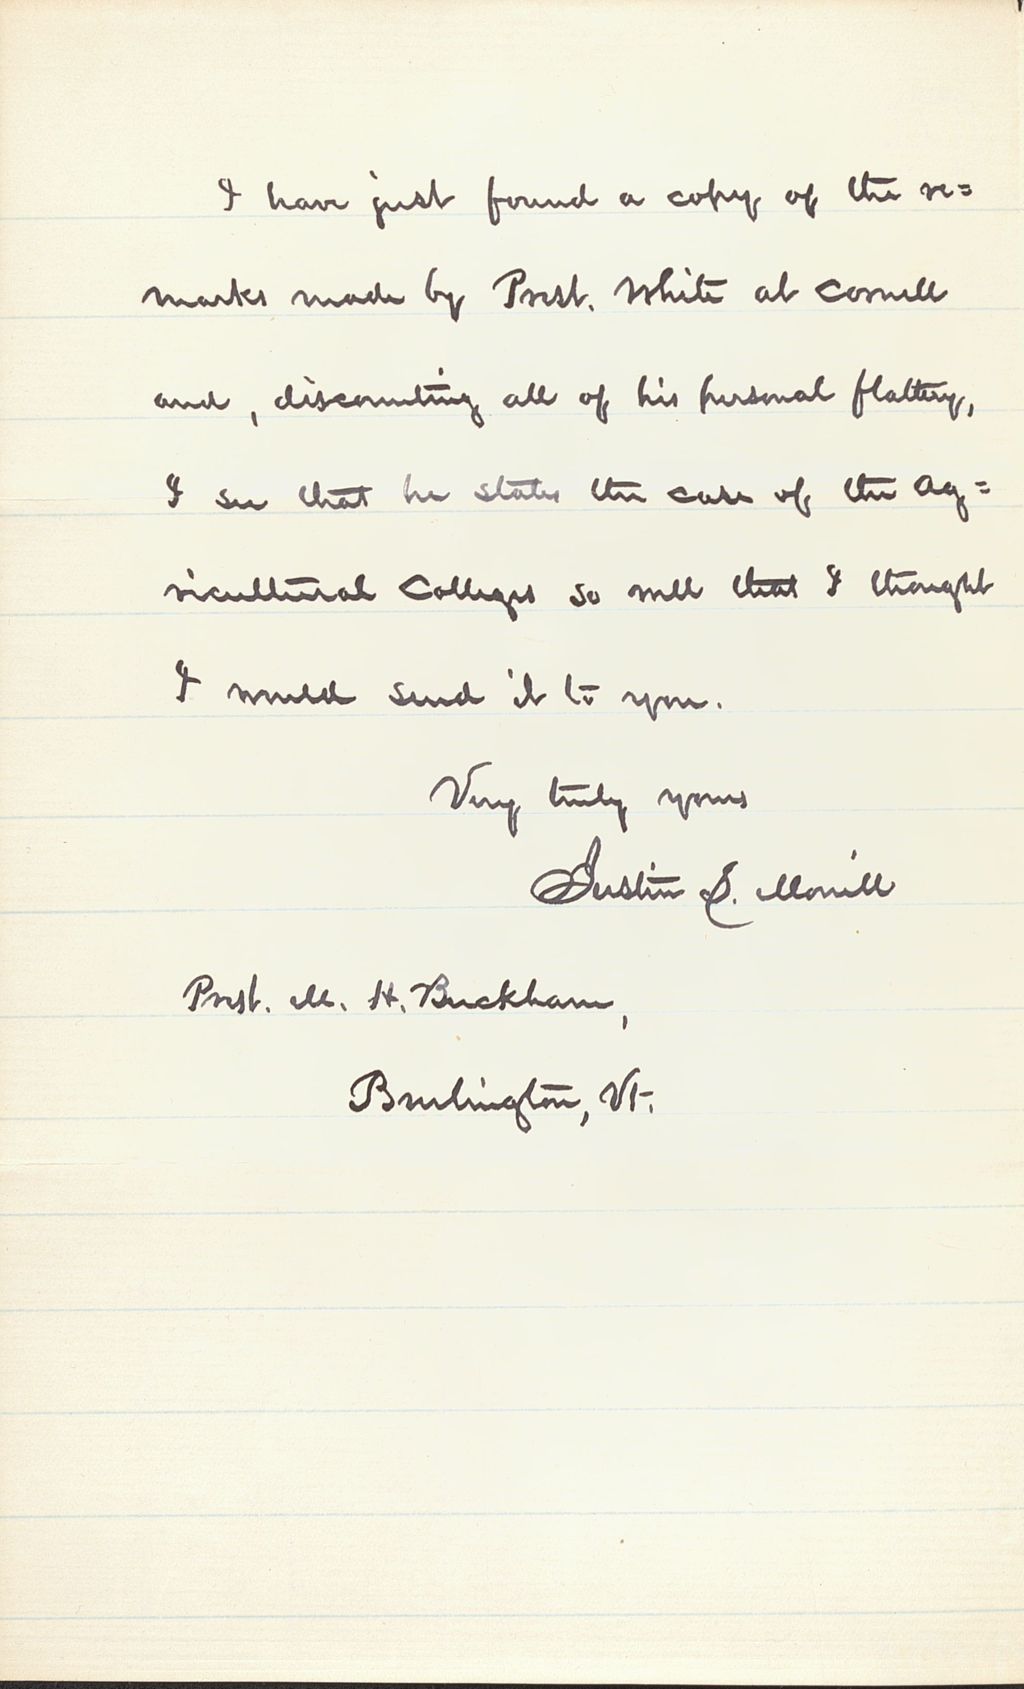 I have just found a copy of the re=
marks made by Prest. White at Cornell
and, discounting all of his personal flattery,
I see that he states the case of the Ag=
ricultural Colleges so well that I thought
I would send it to you.
Very truly yours
Justin S. Morrill
Prest. M. H. Buckham,
Burlington, Vt.